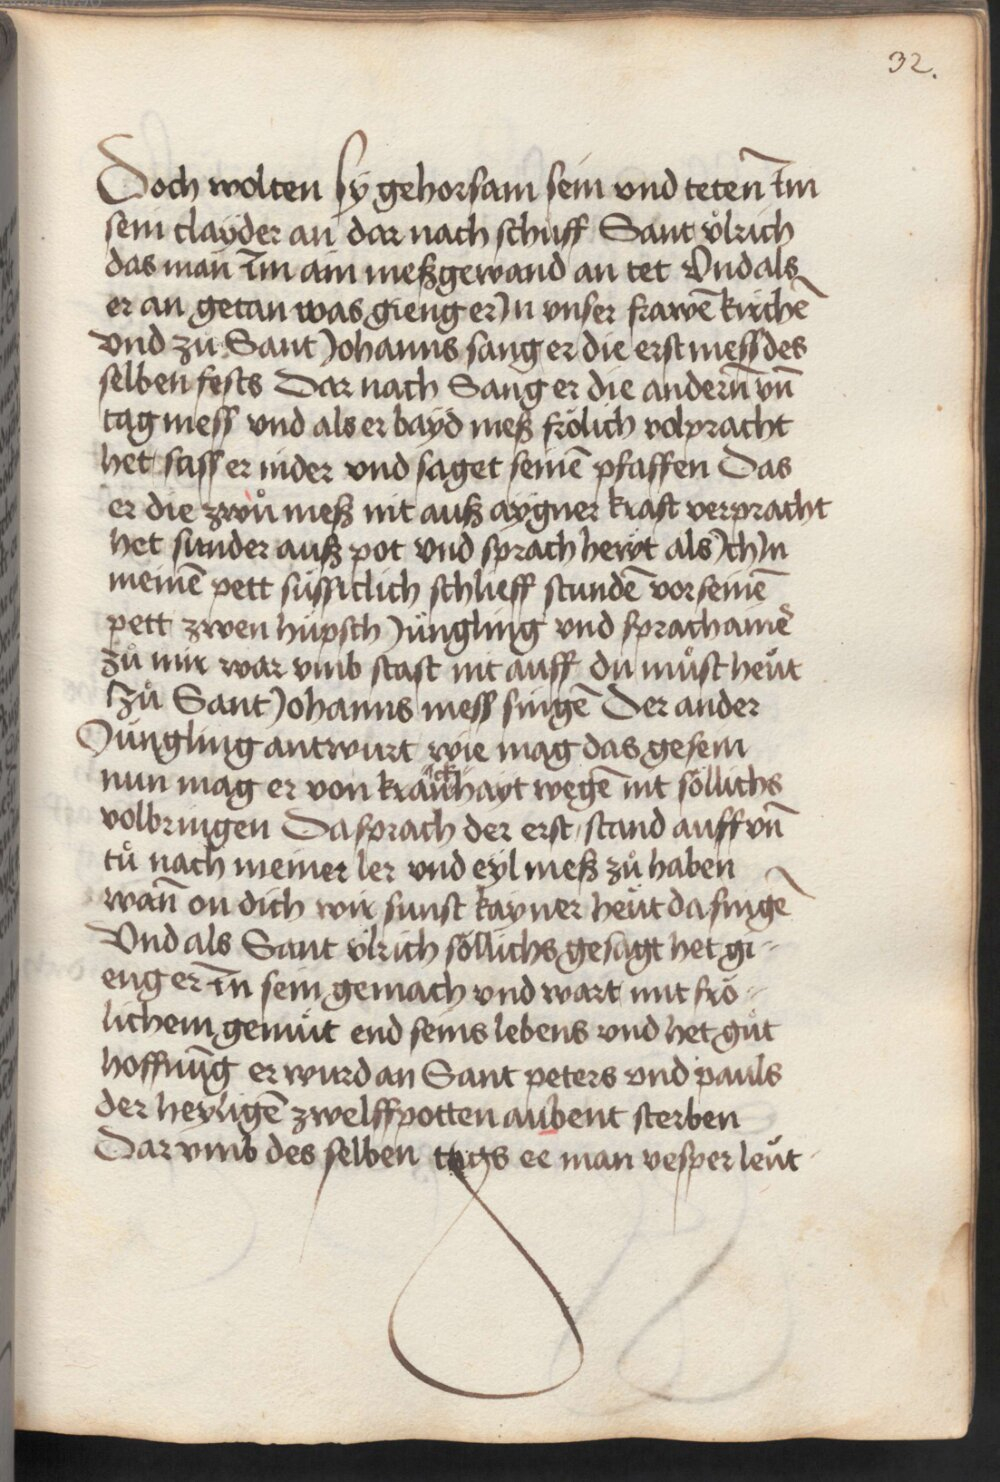 32.
Doch wolten sÿ gehorsam sein und teten̄ Im
sein clayder an dar nach schuff Sant ůlrich
das man Im ain meßgewand an tet Und als
er an getan was gieng er Jn vnser frawē kirchē
vnd zů Sant Johanns sang er die erst mess des
selben fests Dar nach Sang er die andern̄ vn̄
tag mess vnd als er bayd meß frölich volpracht
het sass er nider vnd saget seinē pfaffen Das
er die zwů meß nit auß aygner kraft verpracht
het sunder auß pot vnd sprach hewt als Jch Jn
meinē pett süssiclich schlieff stundē vor seinē
pett zwen hüpsch Jüngling vnd sprach ainer
zů mir war vmb stast nit auff du můst heüt
zů Sant Johanns mess singē Der ander
Jüngling antwurt wie mag das gesein
nun mag er von kranckhayt wegē nit söllichs
volbringen Da sprach der erst stand auff vn̄
tů nach meiner ler vnd eyl meß zů haben
wan̄ on dich wir sunst kayner heüt da singē
Und als Sant ůlrich söllichs gesagt het gi-
eng er In sein gemach vnd wart mit frö-
lichem gemüt end seins lebens vnd het gůt
hoffnūg er wurd an Sant peters vnd pauls
der heyligē zwelffpotten aubent sterben
Dar vmb des selben tags ee man vesper leüt